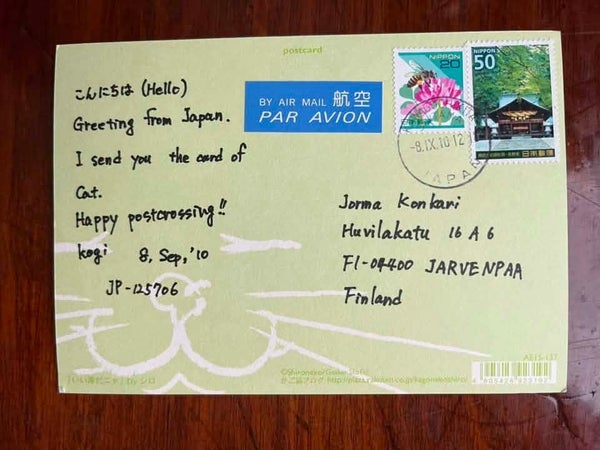 postcard
こんにちは (Hello)
Greeting from Japan.
I send you the card of
Cat.
Happy postcrossing!!
kogi 8, Sep, '10
JP-125706
BY AIR MAIL 航空
PAR AVION
NIPPON
20
NIPPON
50
日本郵便
-8.IX.10 12
JAPAN
Jorma Konkari
Huvilakatu 16 A 6
FI-04400 JARVENPAA
Finland
AE15-137
by シロ
©Shironeko/
かご猫ブログ